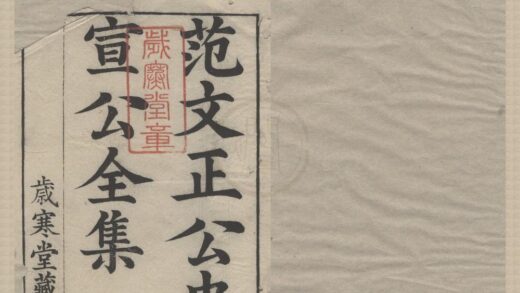 范文正公
宣公全集
歲寒堂藏
歲寒堂章